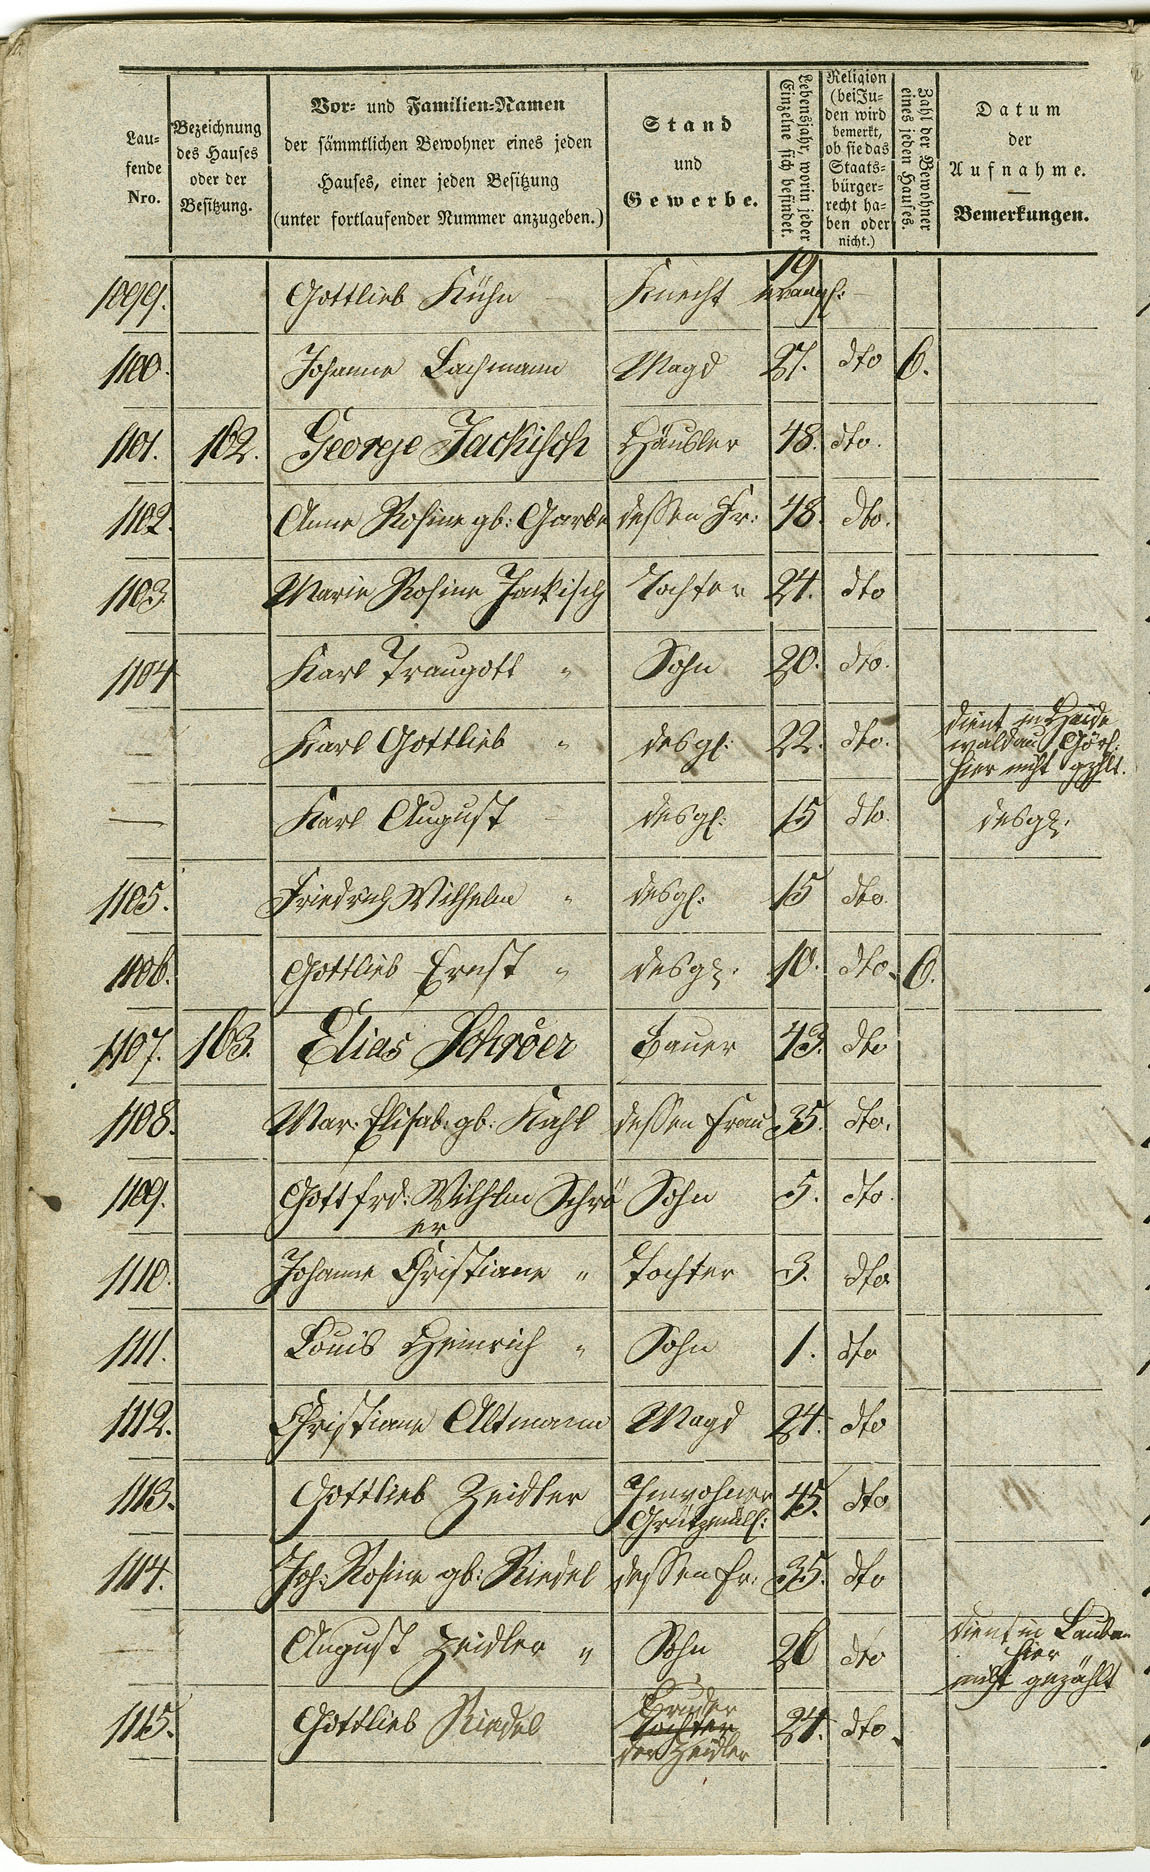 Lau-
fende
Nro.
Bezeichnung
des Hauses
oder der
Besitzung.
Vor- und Familien-Namen
der sämmtlichen Bewohner eines jeden
Hauses, einer jeden Besitzung
(unter fortlaufender Nummer anzugeben.)
Stand
und
Gewerbe.
Lebensjahr, worin jeder
Einzelne sich befindet.
Religion
(bei Ju-
den wird
bemerkt,
ob sie das
Staats-
bürger-
recht ha-
ben oder
nicht.)
Zahl der Bewohner
eines jeden Hauses.
Datum
der
Aufnahme.
Bemerkungen.
1099. Gottlieb Kühn Knecht 19 evangl:
1100. Johanne Lachmann Magd 27. dto 6.
1101. 162. George Jackisch Häusler 48. dto.
1102. Anne Rosine gb: Garbe dessen Fr: 48. dto.
1103. Marie Rosine Jackisch Tochter 24. dto
1104 Karl Traugott " Sohn 20. dto.
— Karl Gottlieb " desgl: 22. dto. dient in Heide
waldau Görl:
hier nicht gzhlt.
— Karl August desgl: 15 dto. desgl.
1105. Friedrich Wilhelm " desgl: 15 dto.
1106. Gottlieb Ernst " desgl. 10. dto. 6.
1107. 163. Elias Schröer Bauer 43. dto
1108. Mar: Elisab: gb: Kahl dessen Frau 35. dto.
1109. Gottfrd: Wilhlm Schrö Sohn 5. dto.
er
1110. Johanne Christiane " Tochter 3. dto
1111. Louis Heinrich " Sohn 1. dto
1112. Christiane Altmann Magd 24. dto
1113. Gottlieb Zeidler Inwohner 45. dto
1114. Joh: Rosine gb: Riedel dessen Fr: 35. dto
— August Zeidler " Sohn 26 dto dient in Lauban
hier
nicht gezählt
1115. Gottlieb Riedel Bruder 24. dto.
Tochter
der Zeidler